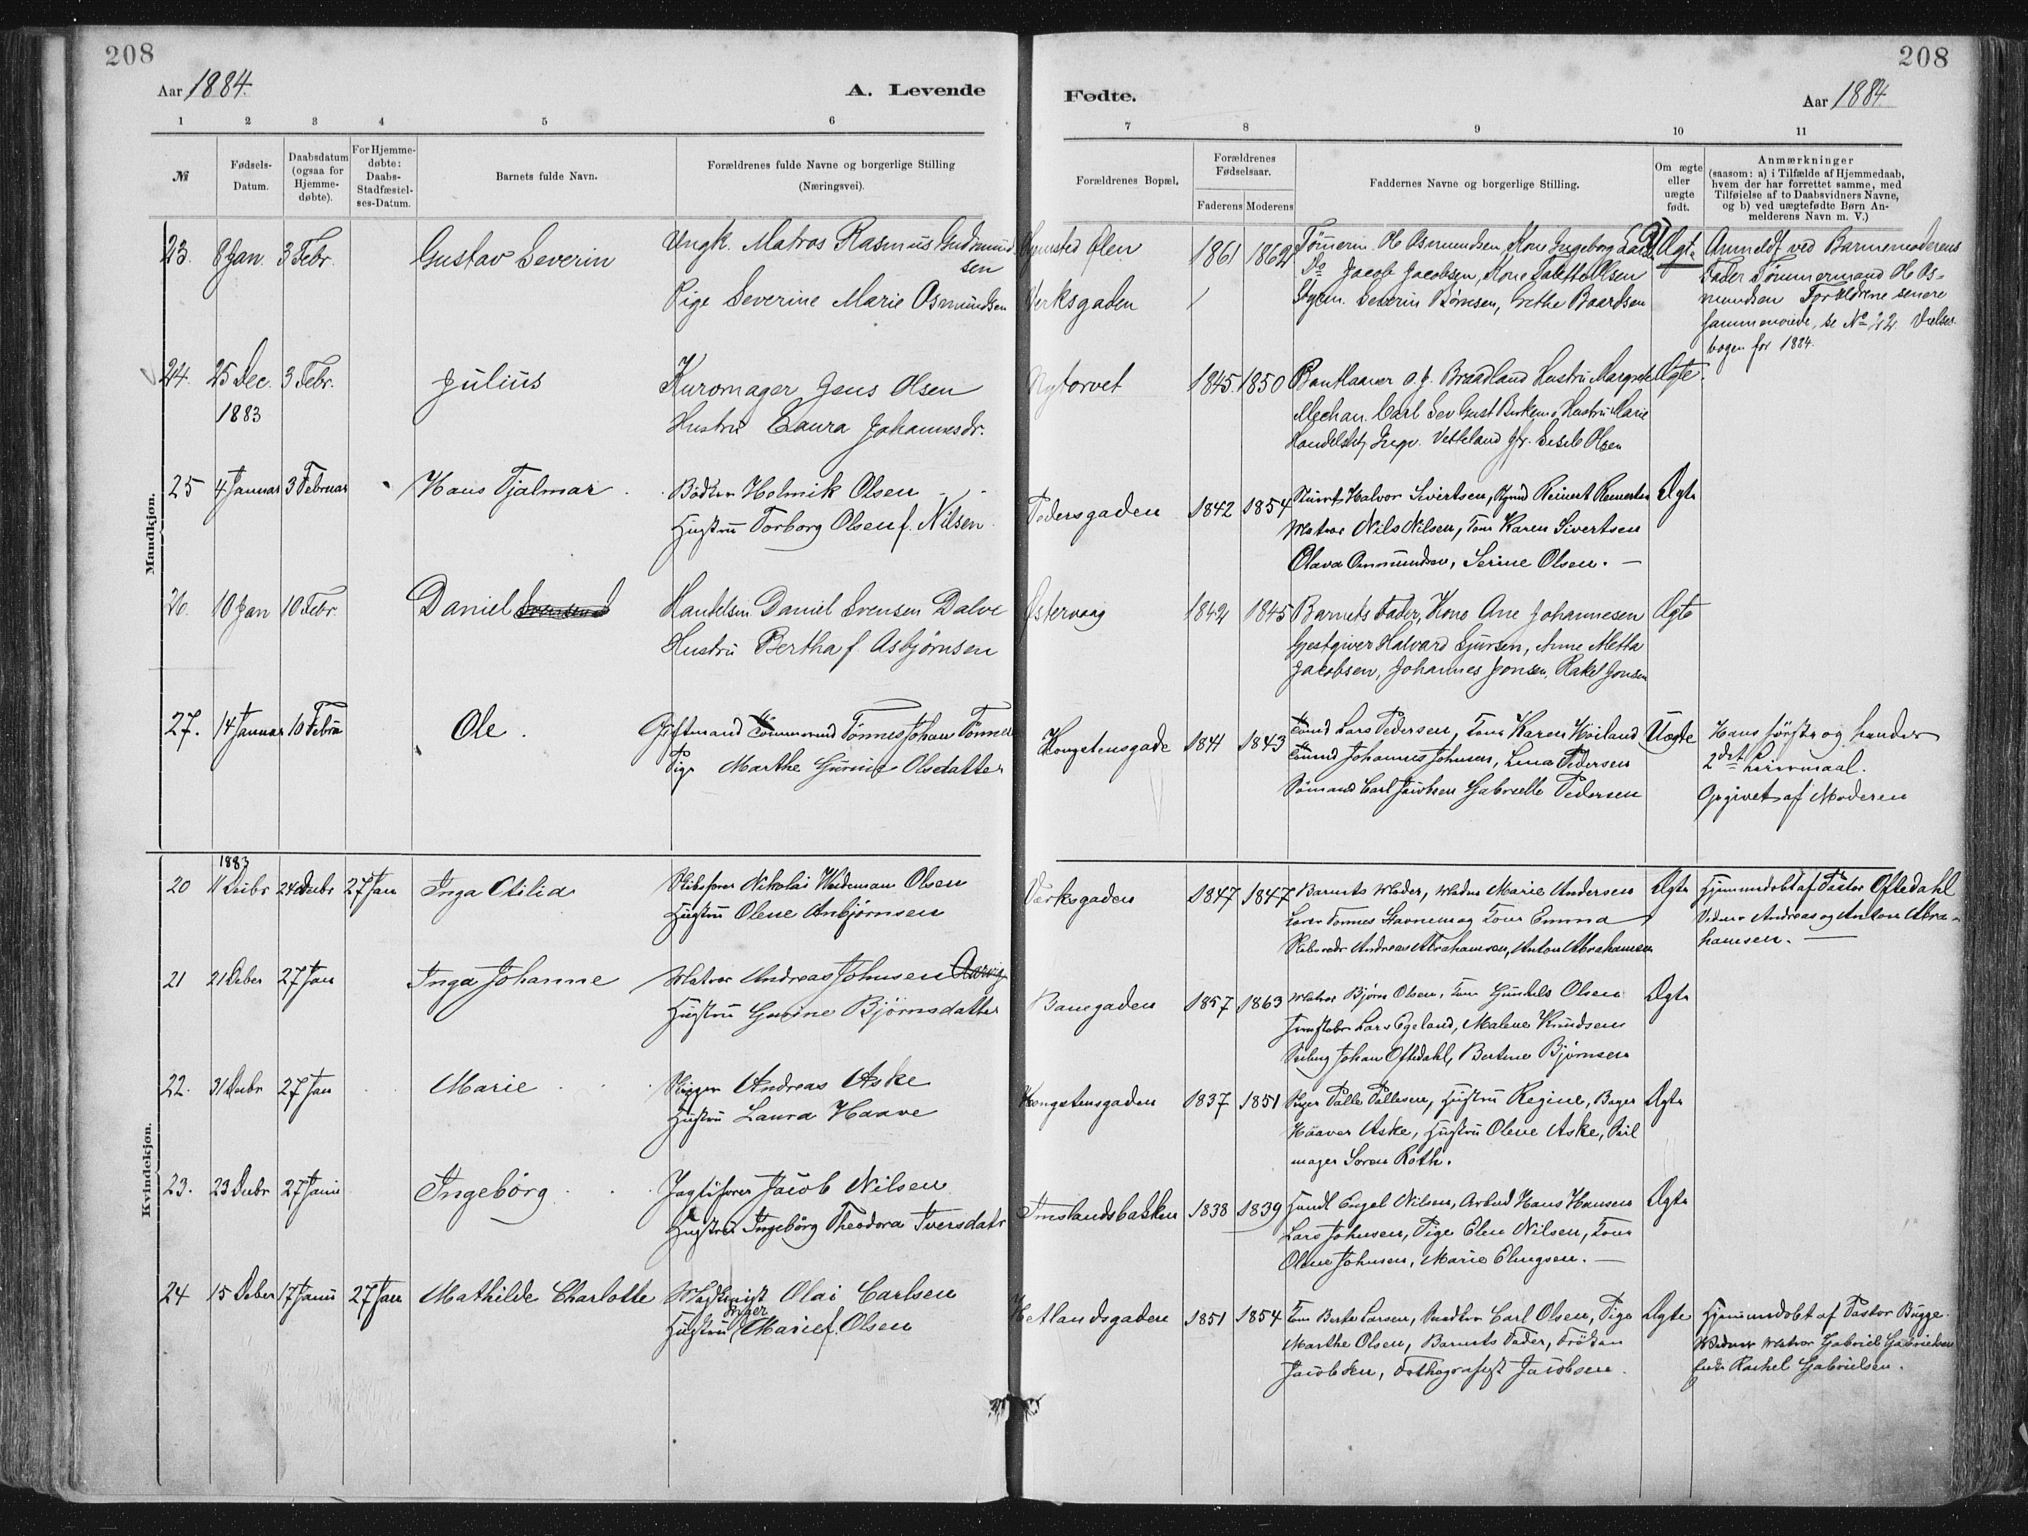 208
Aar 1884.
A. Levende
1 2 3 4 5 6
№
Fødsels-Datum.
Daabsdatum (ogsaa for Hjemmedøbte).
For Hjemmedøbte: Daabs-Stadfæstelses-Datum.
Barnets fulde Navn.
Forældrenes fulde Navne og borgerlige Stilling (Næringsvei).
Mandkjøn.
23. 8 Jan. 3 Febr. Gustav Severin Ungk. Matros Rasmus Gudmundsen
Pige Severine Marie Osmundsen
24. 25 Dec. 3 Febr. Julius Kuromager Jens Olsen
1883 Hustru Laura Johannesdr.
25 4 Januar 3 Februar Hans Hjalmar Bødker Helmik Olsen
Hustru Torborg Olsen f. Nilsen
26. 10 Jan 10 Febr Daniel Handelsm. Daniel Svensen Dalve
Hustru Bertha f Asbjørnsen
27. 14 Januar 10 Febru Ole. Giftmand Tømmermd Tønnes Johan Tønnes
Pige Marthe Gurine Olsdatter
Kvindekjøn.
1883
20 11 Decbr 26 Decbr 27 Jan Inga Otilia Skibsfører Nikolai Weideman Olsen
Hustru Olene Anbjørnsen
21 21 Decber 27 Jan Inga Johanne Matros Andreas Johnsen
Hustru Gurine Bjørnsdatter
22. 31 Decbr 27 Jan Marie Skipper Andreas Aske
Hustru Laura Haave
23. 23 Decbr 27 Janu Ingebørg Jagtfører Jacob Nilsen
Hustru Ingebørg Theodora Iversdatr
24 15 Decber 17 Janu 27 Jan Mathilde Charlotte Olai Carlsen
Hustru Inger Marie f. Olsen
208
Fødte.
Aar 1884.
7 8 9 10 11
Forældrenes Bopæl.
Forældrenes Fødselsaar.
Faderens Moderens
Faddernes Navne og borgerlige Stilling.
Om ægte eller uægte født.
Anmærkninger
(saasom: a) i Tilfælde af Hjemmedaab,
hvem der har forrettet samme, med
Tilføielse af to Daabsvidners Navne,
og b) ved uægtefødte Børn Anmelderens Navn m. V.)
Ølen 1861 1862 Tømerm. O Osmundsen, Kone Ingeborg Uægte Anmeldt ved Barnemoderens
Verksgaden Do Jacob Jacobsen, Kone Olsen Fader Tømmermand O Os-
Severin Børnsen, Baardsen mundsen Forældrene senere
sammenviede, se No 22 Vielses-
bogen for 1884.
Nytorvet 1845. 1850 O. J. Braadland Hustru Margrete Ægte.
Mechan. Carl Sev Gust Hustru Marie
Handelsbtj. Ingv. Vetteland Jfr. Sesele Olsen
Pedersgaden 1842 1854 Halvor Sivertsen, Reinert Ægte
Matros Nils Nilsen, Kone Karen Sivertsen
Olava Osmundsen, Serine Olsen. —
Østervaag 1842 1845 Barnets Fader, Kone Ane Johannesen Ægte
Gjestgiver Halvard Sjursen, Anne Metta
Jacobsen, Johannes Jonsen, Rakel Jonsen
Kongstensgade 1841 1843 Lars Pedersen, Kone Karen Høiland Uægte Hans første og hendes
Johannes Johnsen, Lena Pedersen 2det Leiermaal.
Sømand Carl Jacobsen Gabrielle Pedersen Opgivet af Moderen
Værksgaden 1847 1847 Barnets Fader, Marie Andersen Ægte Hjemmedøbt af Pastor Oftedahl
Tønnes Stavnem og Kone Emma Vidner Andreas og Anton Abra-
Andreas Abrahamsen, Anton Abrahamsen hamsen. —
Banegaden 1857 1863 Matros Bjørn Olsen, Kone Olsen Ægte
Lars Egeland, Malene Knudsen
Johan Oftedahl, Bertine Bjørnsen
Kongstensgaden 1837 1851 Palle Pallesen, Hustru Regine, Bager Ægte
Haaver Aske, Hustru Olene Aske, Seil
mager Soren Roth.
Imslandsbakken 1838 1839 Engel Nilsen, Arbmd Hans Hansen Ægte
Lars Johnsen, Pige Elen Nilsen, Kone
Olene Johnsen, Marie Elingsen. —
Hetlandsgaden 1851 1854 Kone Berte Larsen, Carl Olsen, Pige Ægte Hjemmedøbt af Pastor Bugge.
Marthe Olsen, Barnets Fader, Frøken Vidner Matros Gabriel Gabrielsen
Jacobsen, Jacobsen. Rachel Gabrielsen.